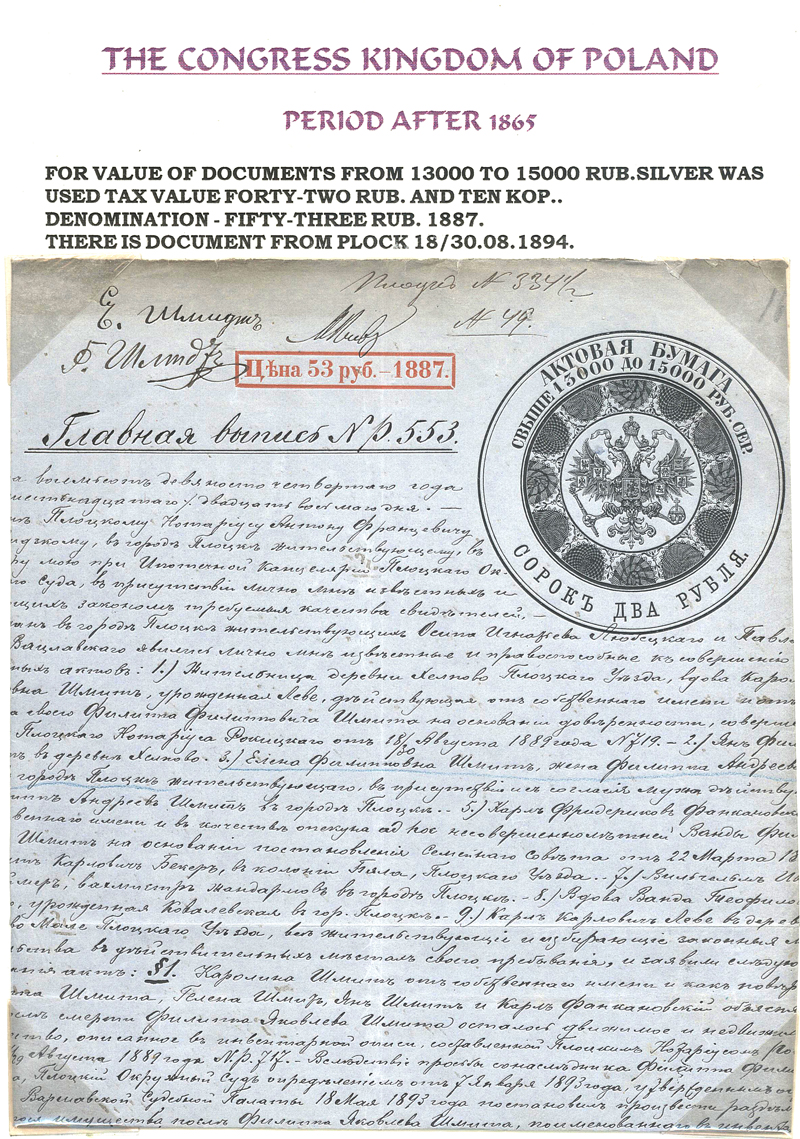 THE CONGRESS KINGDOM OF POLAND
PERIOD AFTER 1865
FOR VALUE OF DOCUMENTS FROM 13000 TO 15000 RUB.SILVER WAS
USED TAX VALUE FORTY-TWO RUB. AND TEN KOP..
DENOMINATION - FIFTY-THREE RUB. 1887.
THERE IS DOCUMENT FROM PLOCK 18/30.08.1894.
Плоцкъ N 334 1/2
Е. Шмидтъ
N 49.
Г. Шмидтъ
Цѣна 53 руб.–1887.
АКТОВАЯ БУМАГА
СВЫШЕ 13000 ДО 15000 РУБ. СЕР.
СОРОКЪ ДВА РУБЛЯ.
Главная выпись N Р. 553.
а восемьсотъ девяносто четвертаго года
двадцать восьмаго дня. —
Плоцкому Нотаріусу Антону Францевичу
въ городѣ Плоцкѣ жительствующему, въ
мою при Ипотечной Канцеляріи Плоцкаго Ок-
Суда, въ присутствіи лично мнѣ извѣстныхъ и
закономъ требуемыя качества свидѣтелей, —
въ городѣ Плоцкѣ жительствующихъ Осипа Любецкаго и Павл
Вацлавскаго явились лично мнѣ извѣстные и правоспособные къ совершенію
ныхъ актовъ: 1.) Жительница деревни Плоцкаго Уѣзда, вдова Каро
вна Шмитъ, урожденная Леве, дѣйствующая отъ собственнаго имени и
своего Филиппа Филипповича Шмита на основаніи довѣренности, соверш
Плоцкаго Нотаріуса Рокицкаго отъ 18/30 Августа 1889 года N 719. – 2.) Янъ Фил
въ деревнѣ 3.) Елена Филипповна Шмитъ, жена Филиппа Андреев
городѣ Плоцкѣ жительствующаго, въ присутствіи и съ согласія мужа дѣйству
Андреевъ Шмитъ въ городѣ Плоцкѣ. – 5.) Карлъ Фридериковъ
веннаго имени и въ качествѣ опекуна ad hoc несовершеннолѣтней Ванды Фил
Шмитъ на основаніи постановленія Семейнаго Совѣта отъ 22 Марта 18
Карловичъ Бекеръ, въ колоніи Бяла, Плоцкаго Уѣзда. – 7.) Вильгельмъ
вахмистръ жандармовъ въ городѣ Плоцкѣ. – 8.) Вдова Ванда Теофило
урожденная Ковалевская въ гор. Плоцкѣ. – 9.) Карлъ Карловичъ Леве въ дерев
Плоцкаго Уѣзда, всѣ жительствующіе и избирающіе законныя
въ дѣйствительныхъ мѣстахъ своего пребыванія, и заявили слѣдую
актъ: §1. Каролина Шмитъ отъ собственнаго имени и какъ повѣр
Шмита, Гелена Шмидтъ, Янъ Шмитъ и Карлъ
смерти Филиппа Яковлева Шмита осталось движимое и недвижим
ство, описанное въ инвентарной описи, составленной Плоцкимъ Нотаріусомъ
Августа 1889 года N Р. 717. – Вслѣдствіе просьбы Филиппа Фили
Плоцкій Окружный Судъ опредѣленіемъ отъ 7 Января 1893 года, утвержденнымъ
Варшавской Судебной Палаты 18 Мая 1893 года постановилъ произвести раздѣлъ
имущества послѣ Филиппа Яковлева Шмита, поименованнаго въ